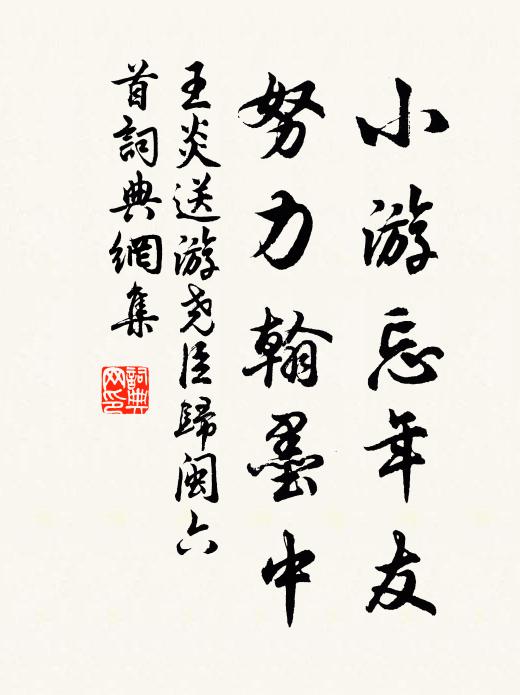 小游忘年友
努力翰墨中
王炎送游尧臣歸闽六
首詞典網集
詞典
网印